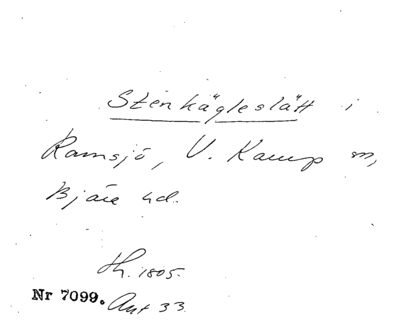 Stenkägleslätt i
Ramsjö, V. Karup sn,
Bjäre hd.
Sk. 1805.
Nr 7099. Ant 33.